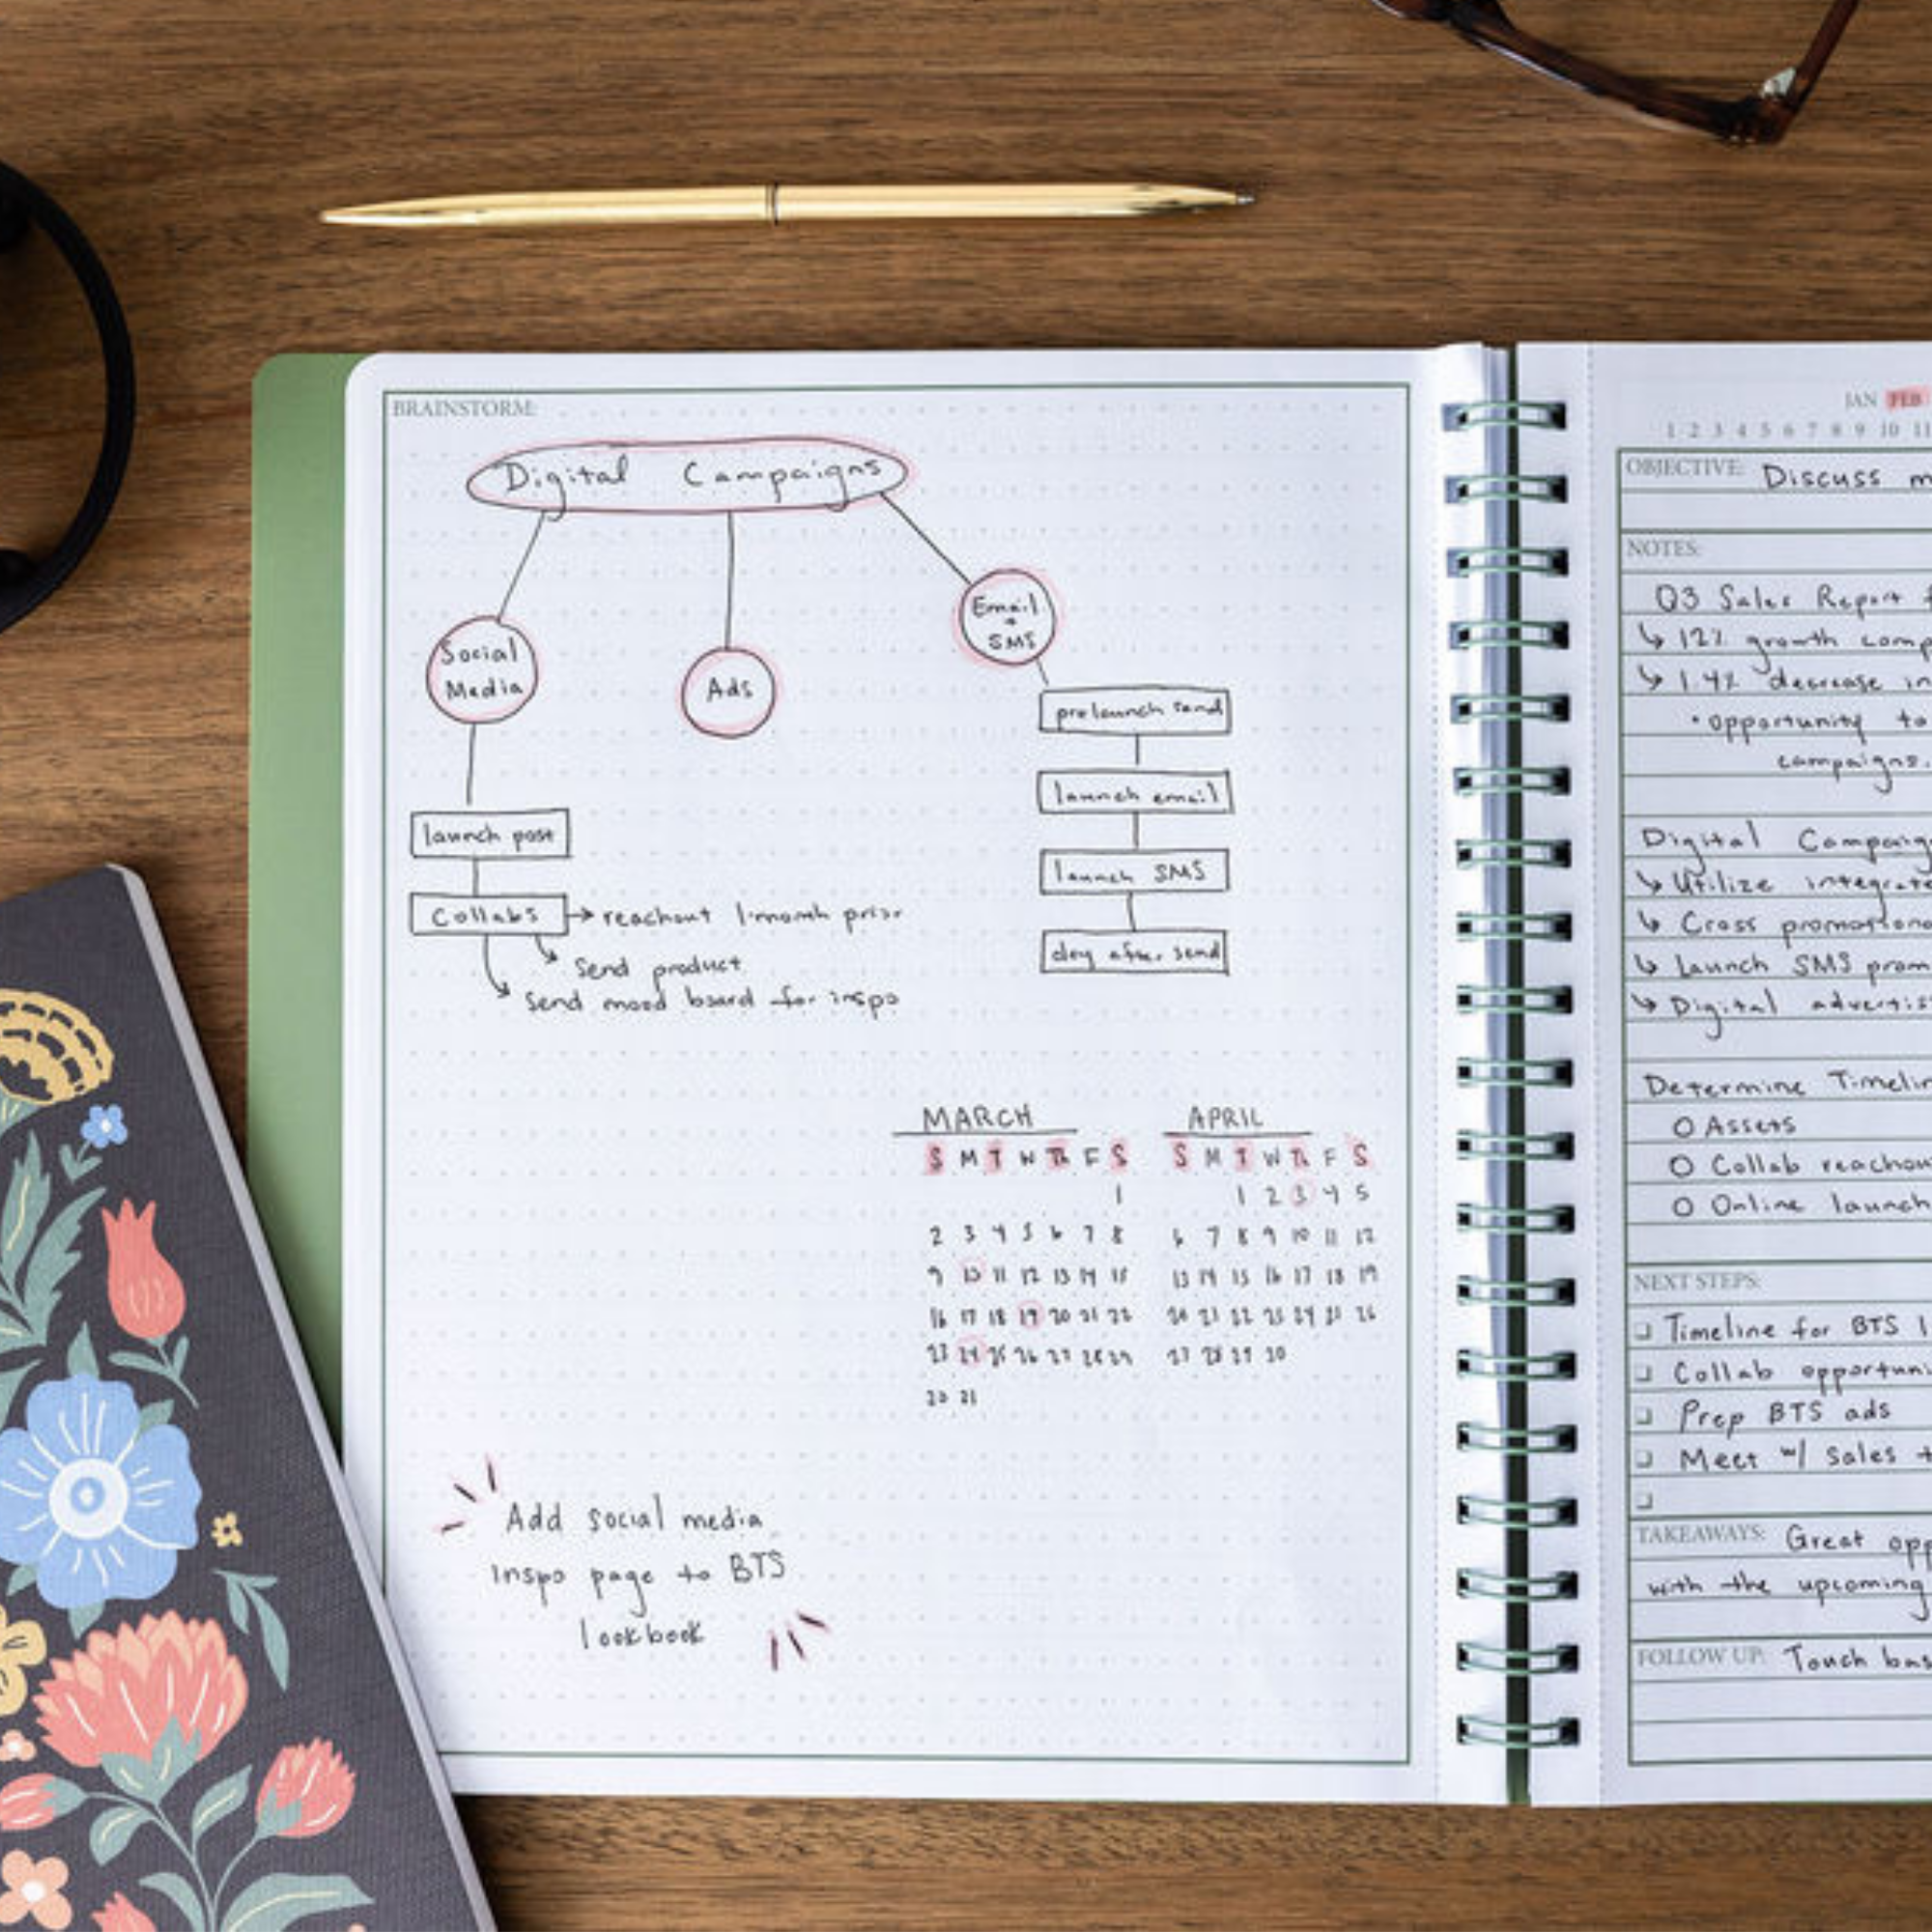 BRAINSTORM:
Digital Campaigns
Social
Media
Ads
Email
+
SMS
prelaunch send
launch email
launch SMS
day after send
launch post
Collabs → reachout 1 month prior
Send product
Send mood board for inspo
MARCH
S M T W Th F S
1
2 3 4 5 6 7 8
9 10 11 12 13 14 15
16 17 18 19 20 21 22
23 24 25 26 27 28 29
30 31
APRIL
S M T W Th F S
1 2 3 4 5
6 7 8 9 10 11 12
13 14 15 16 17 18 19
20 21 22 23 24 25 26
27 28 29 30
Add social media
inspo page to BTS
lookbook
JAN FEB
1 2 3 4 5 6 7 8 9 10 11
OBJECTIVE: Discuss
NOTES:
Q3 Sales Report
↳ 12% growth comp
↳ 1.4% decrease in
• opportunity to
campaigns.
Digital Campaign
↳ Utilize integrate
↳ Cross promotiona
↳ launch SMS prom
↳ Digital advertis
Determine Timelin
O Assets
O Collab reachou
O Online launch
NEXT STEPS:
Timeline for BTS
Collab opportuni
Prep BTS ads
Meet w/ Sales
TAKEAWAYS: Great opp
with the upcoming
FOLLOW UP: Touch bas